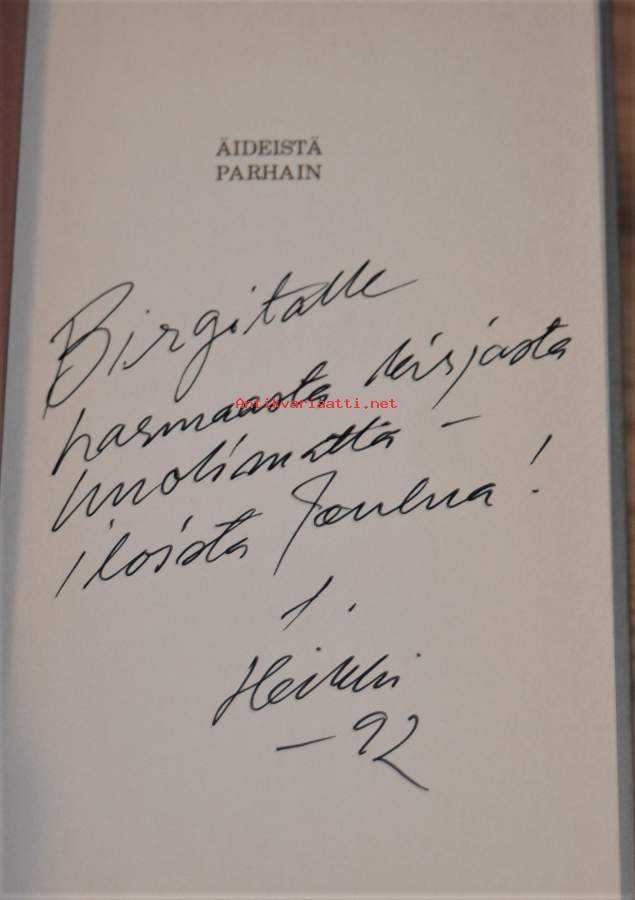 ÄIDEISTÄ
PARHAIN
Birgitalle
harmaasta kirjasta
Antikvariaatti.net
huolimatta -
iloista Joulua!
T.
Heikki
-92